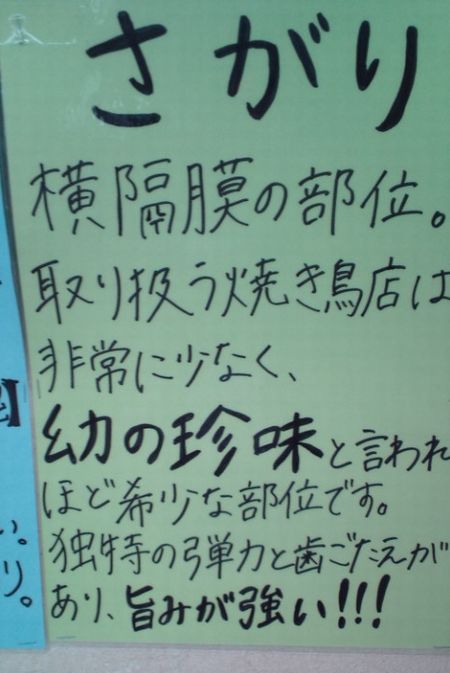 さがり
横隔膜の部位。
取り扱う焼き鳥店は
非常に少なく、
幼の珍味と言われ
ほど希少な部位です。
独特の弾力と歯ごたえが
あり、旨みが強い!!!
い。
り。